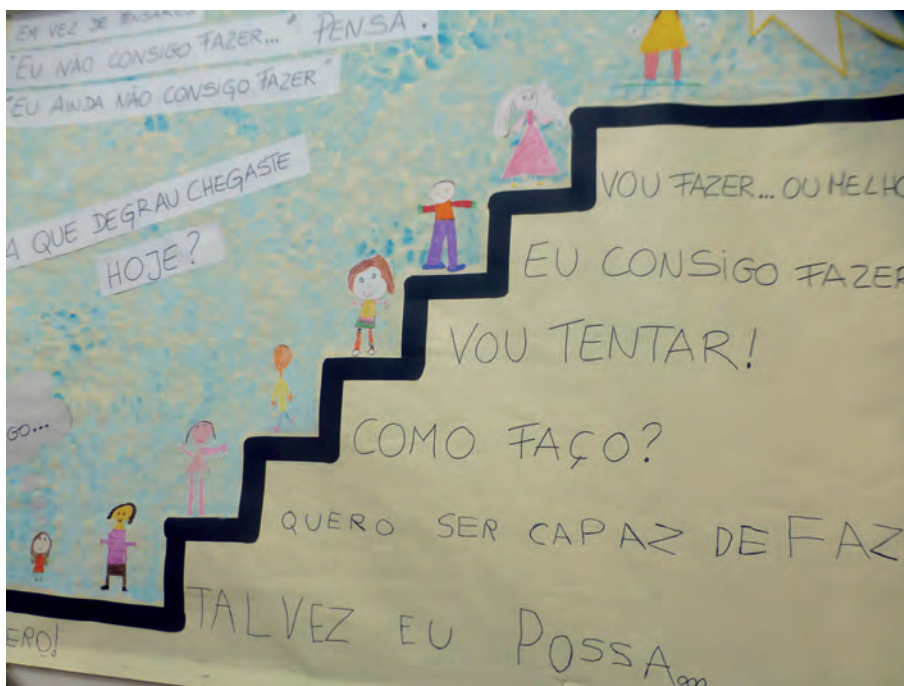 EM VEZ DE
"EU NÃO CONSIGO FAZER..." PENSA:
"EU AINDA NÃO CONSIGO FAZER"
A QUE DEGRAU CHEGASTE
HOJE?
VOU FAZER... OU MELHO
EU CONSIGO FAZER
VOU TENTAR!
GO...
COMO FAÇO?
QUERO SER CAPAZ DE FAZ
TALVEZ EU POSSA...
ERO!